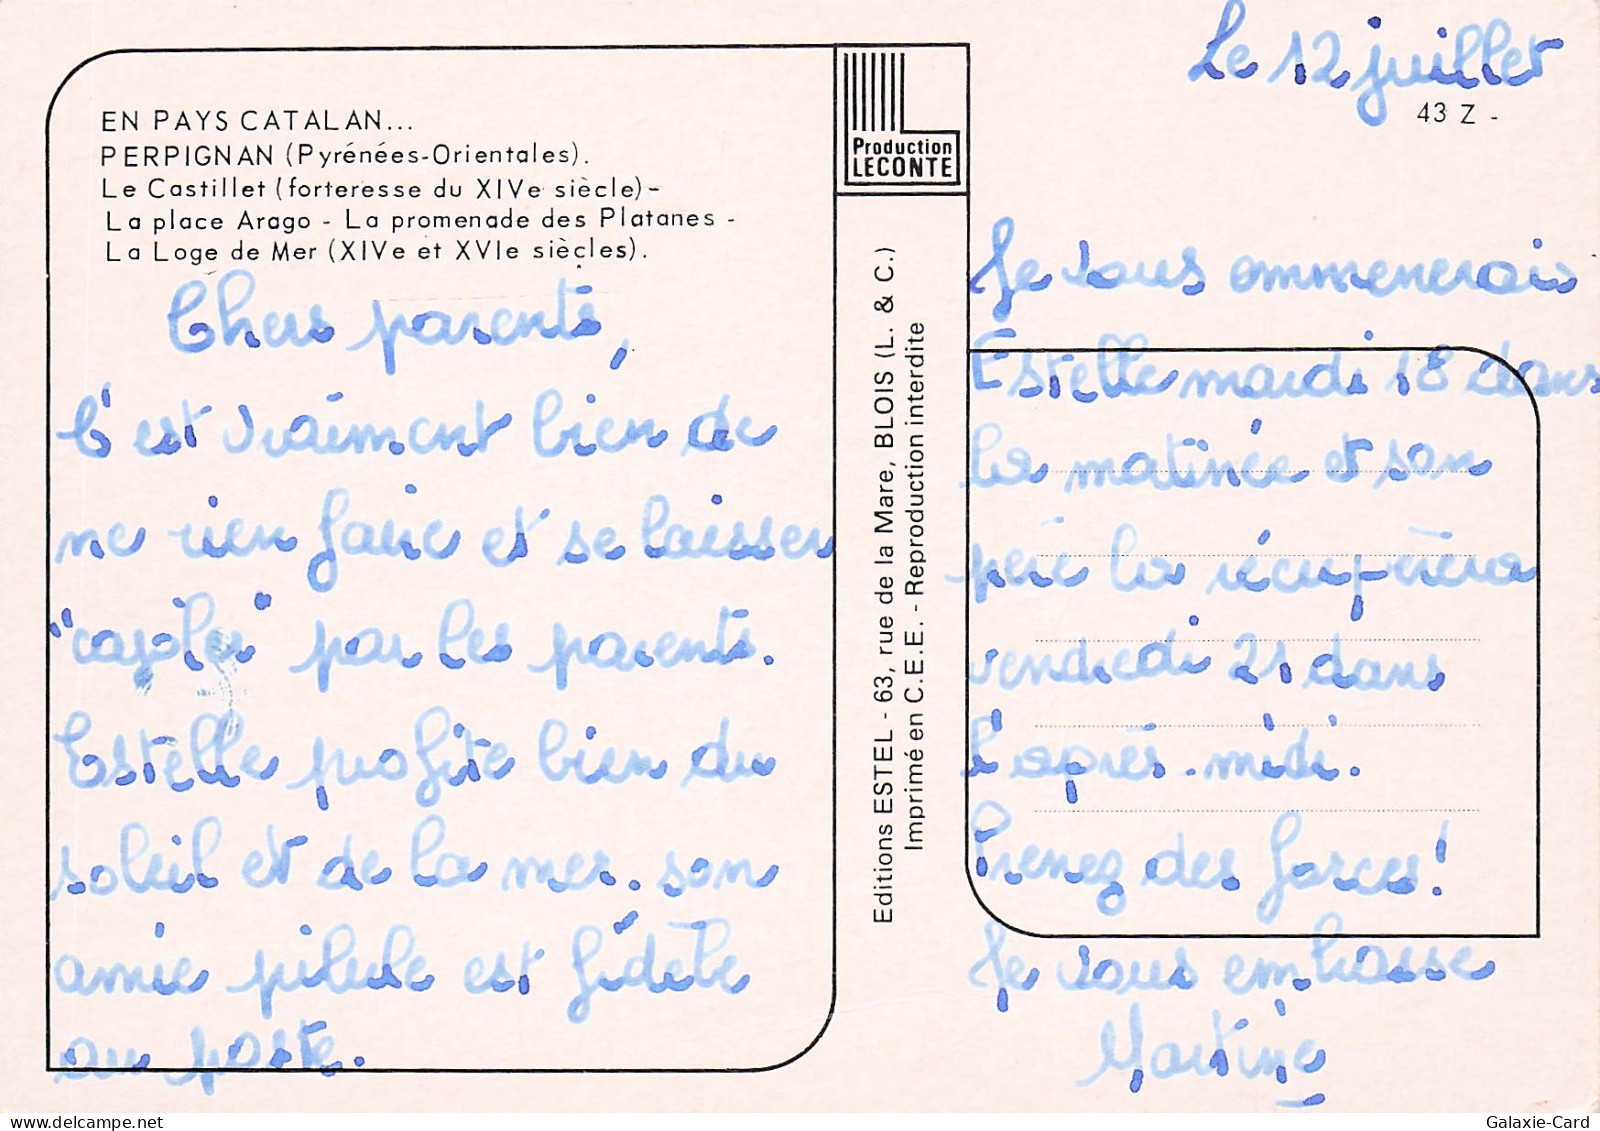 Le 12 juillet
43 Z -
EN PAYS CATALAN...
PERPIGNAN (Pyrénées-Orientales).
Le Castillet (forteresse du XIVe siècle) -
La place Arago - La promenade des Platanes -
La Loge de Mer (XIVe et XVIe siècles).
Chers parents,
C'est vraiment bien de
ne rien faire et se laisser
"cajoler" par les parents.
Estelle profite bien du
soleil et de la mer. son
amie pilule est fidèle
au poste.
Production
LECONTE
Editions ESTEL - 63, rue de la Mare, BLOIS (L. & C.)
Imprimé en C.E.E. - Reproduction interdite
Je vous emmenerais
Estelle mardi 18 dans
la matinée et son
père la récupèrera
vendredi 21 dans
l'après-midi.
Prenez des forces!
Je vous embrasse
Martine
Galaxie-Card